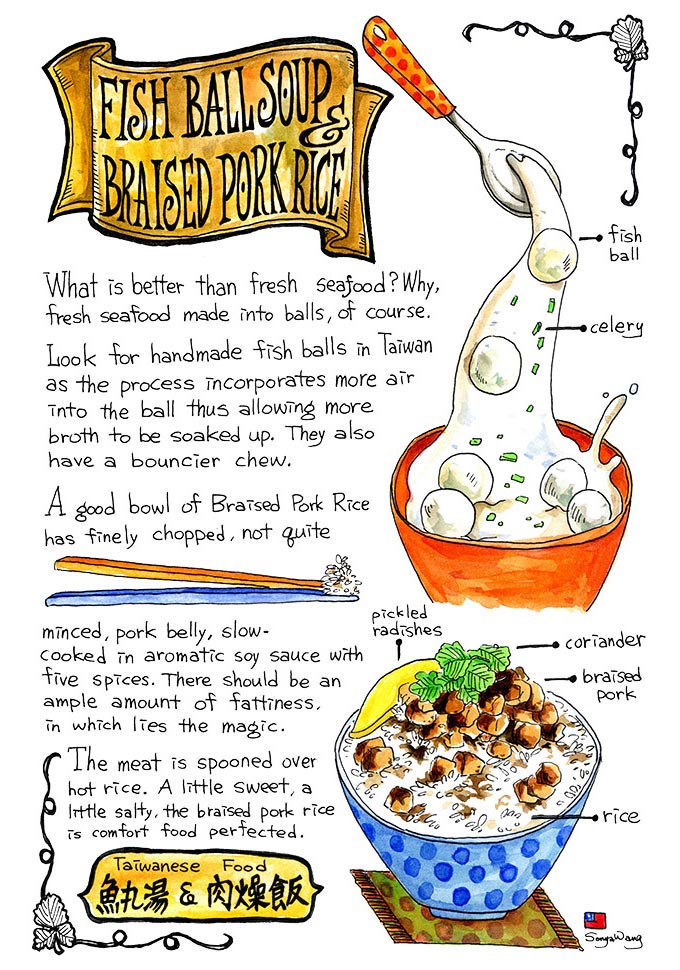 FISH BALL SOUP &
BRAISED PORK RICE
What is better than fresh seafood? Why,
fresh seafood made into balls, of course.
Look for handmade fish balls in Taiwan
as the process incorporates more air
into the ball thus allowing more
broth to be soaked up. They also
have a bouncier chew.
A good bowl of Braised Pork Rice
has finely chopped, not quite
minced, pork belly, slow-
cooked in aromatic soy sauce with
five spices. There should be an
ample amount of fattiness,
in which lies the magic.
The meat is spooned over
hot rice. A little sweet, a
little salty, the braised pork rice
is comfort food perfected.
Taiwanese Food
魚丸湯 & 肉燥飯
fish
ball
celery
pickled
radishes
coriander
braised
pork
rice
Sonya Wang